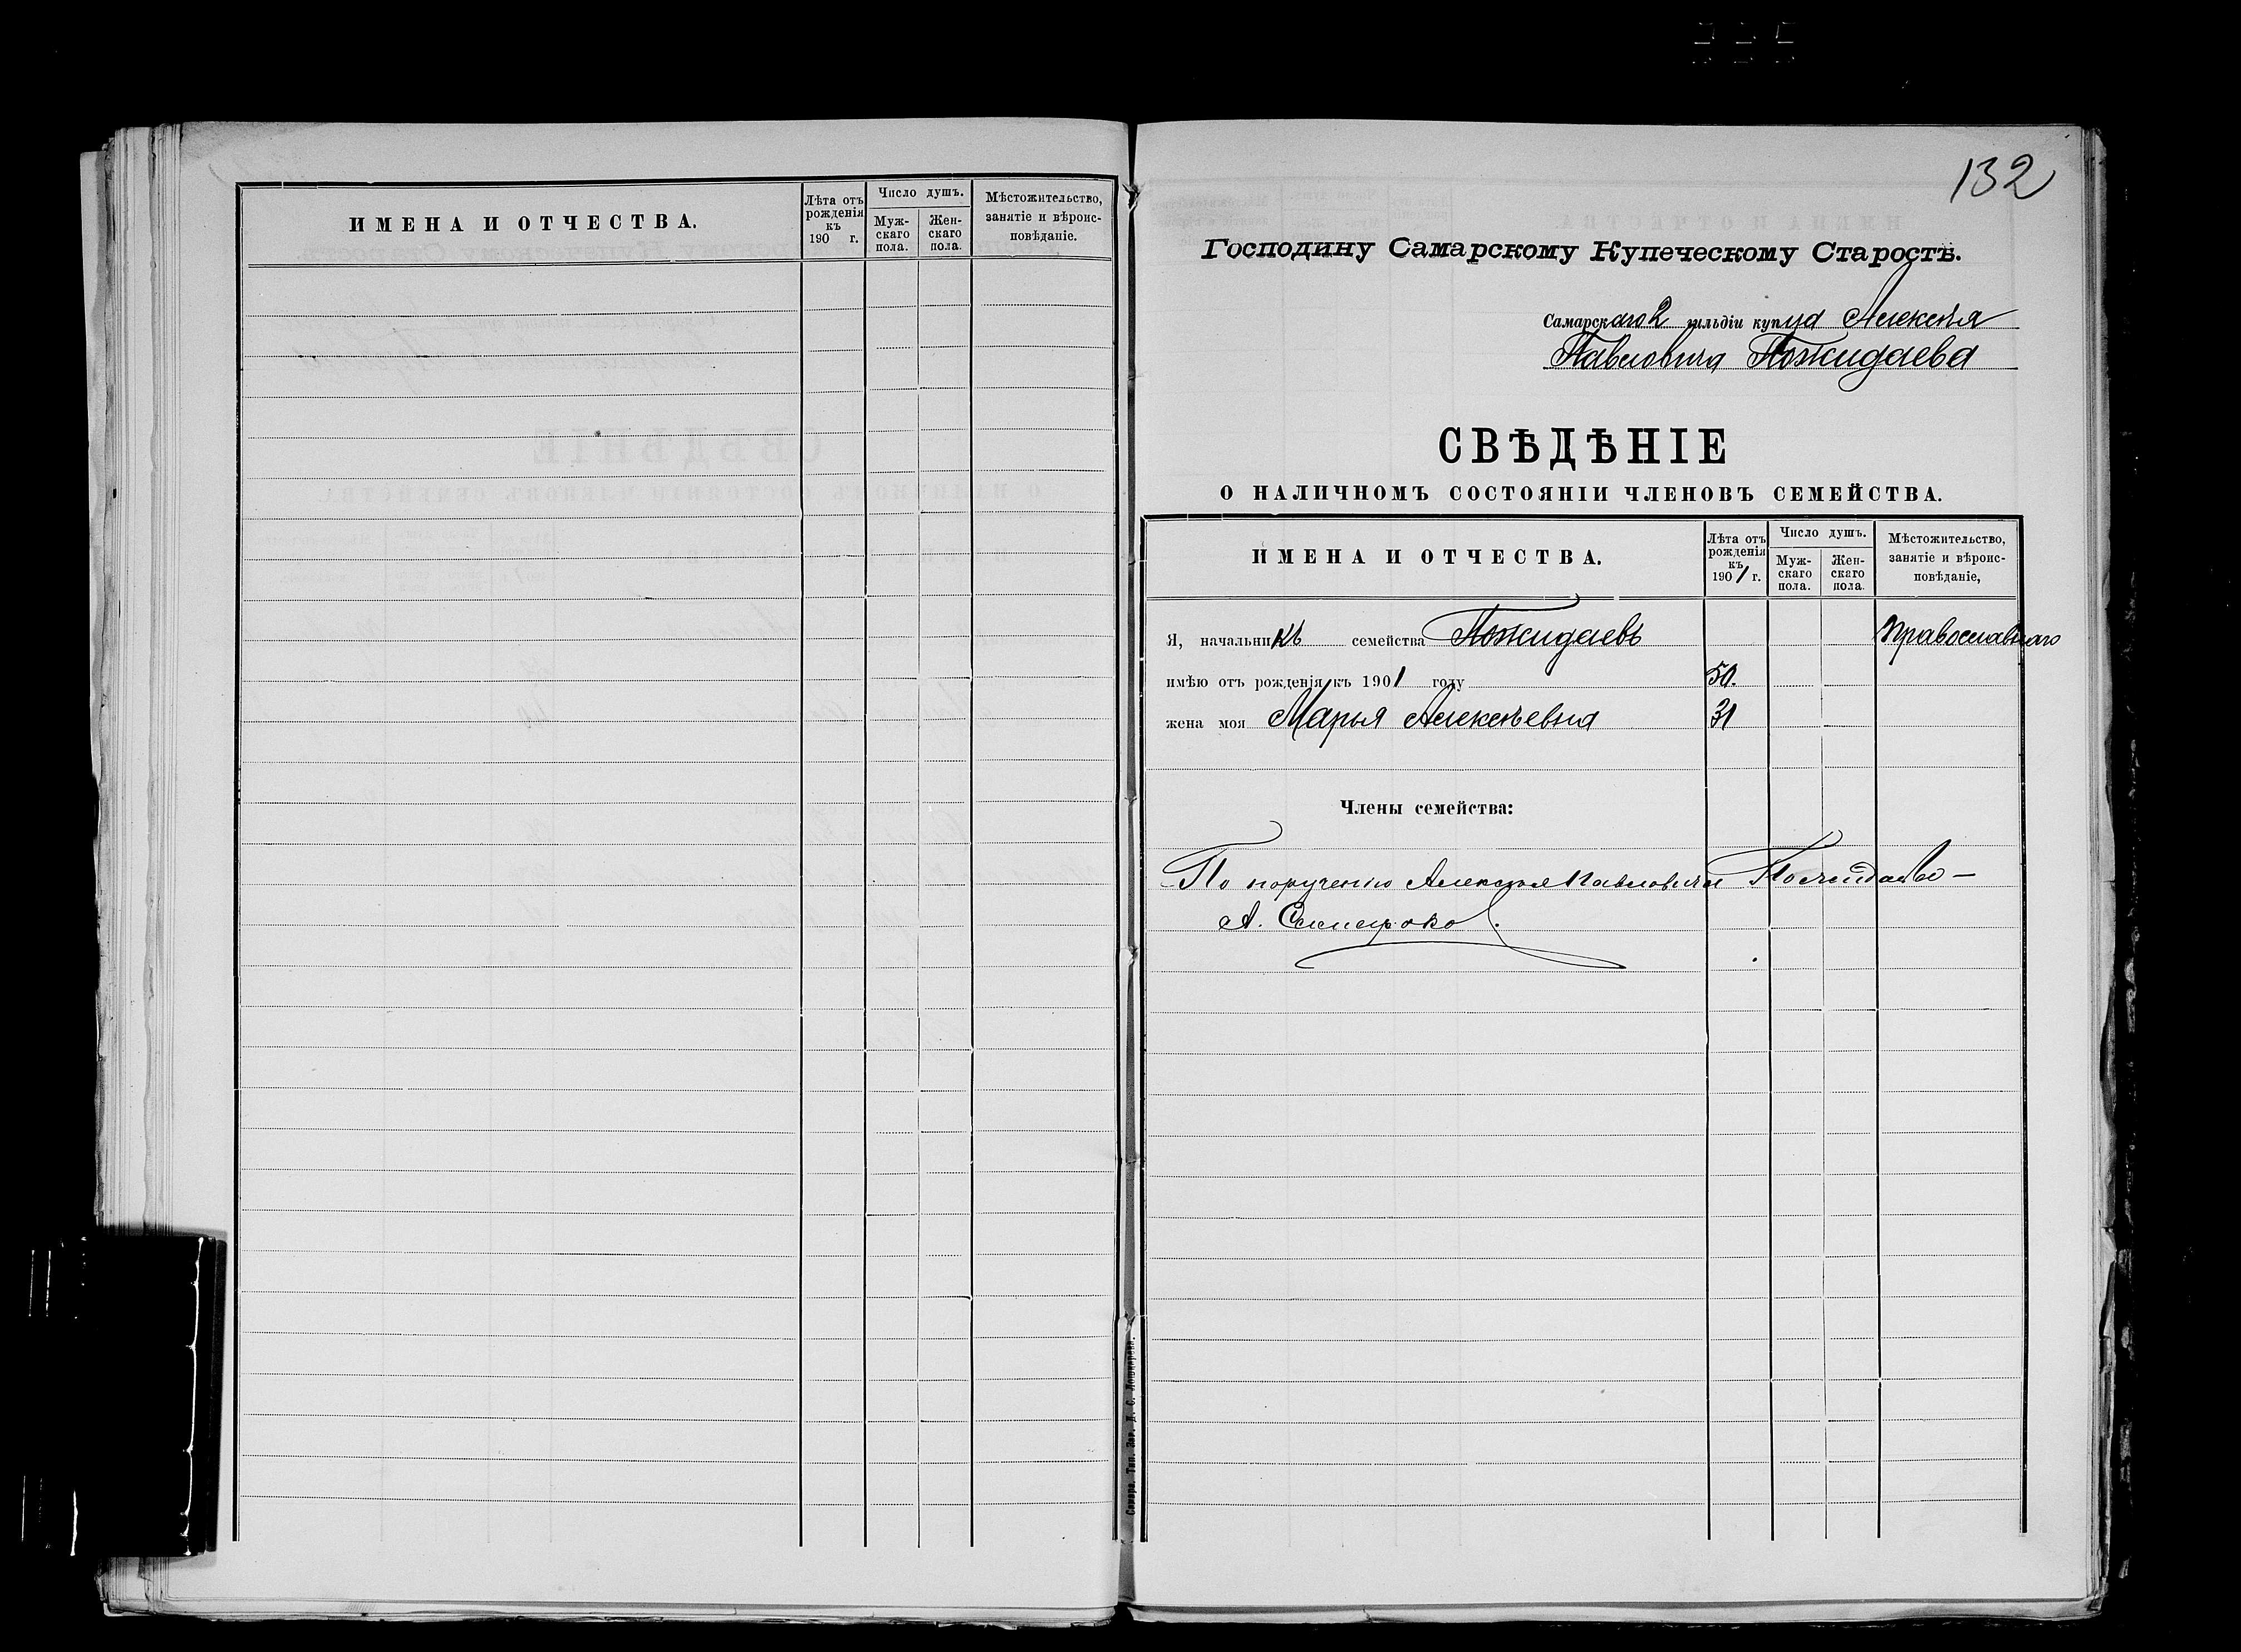 ИМЕНА И ОТЧЕСТВА.
Лѣта отъ рожденія къ 190 г.
Число душъ.
Мужскаго пола.
Женскаго пола.
Мѣстожительство, занятіе и вѣроисповѣданіе.
132
Господину Самарскому Купеческому Старостѣ.
Самарскаго 2 гильдіи купца Алексѣя
Павловича Пожидаева
СВѢДѢНІЕ
О НАЛИЧНОМЪ СОСТОЯНІИ ЧЛЕНОВЪ СЕМЕЙСТВА.
ИМЕНА И ОТЧЕСТВА.
Лѣта отъ рожденія къ 1901 г.
Число душъ.
Мужскаго пола.
Женскаго пола.
Мѣстожительство, занятіе и вѣроисповѣданіе,
Я, начальникъ семейства Пожидаевъ Православнаго
имѣю отъ рожденія къ 1901 году 50.
жена моя Марья Алексѣевна 31
Члены семейства:
По порученію Алексѣя Павловича Пожидаева —
А.
Самара. Тип. Зав. Д. С.